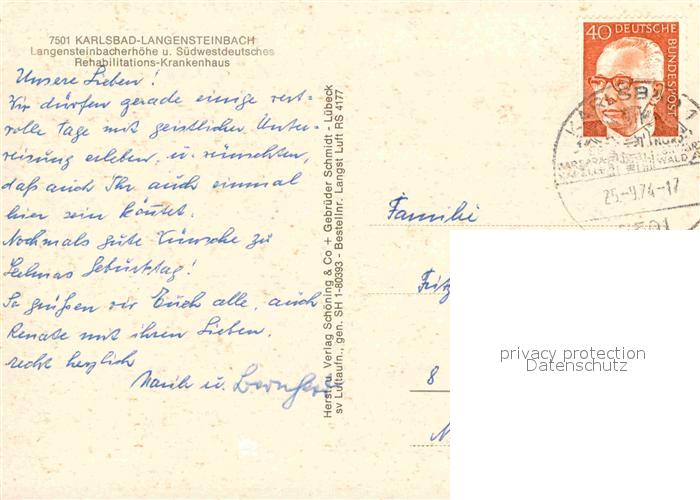 7501 KARLSBAD-LANGENSTEINBACH
Langensteinbacherhöhe u. Südwestdeutsches
Rehabilitations-Krankenhaus
Unsere Lieben!
Wir dürfen gerade einige wert-
volle Tage mit geistlicher Unter-
weisung erleben, u. wünschten,
daß auch Ihr auch einmal
hier sein könntet.
Nochmals gute Wünsche zu
Geburtstag!
So grüßen wir Euch alle, auch
Renate mit ihren Lieben,
recht herzlich
u.
Herst. u. Verlag Schöning & Co + Gebrüder Schmidt - Lübeck
sv Luftaufn., gen. SH 1-80393 - Bestellnr. Langst Luft RS 4177
40 DEUTSCHE
BUNDESPOST
KARLSBAD 1
WALD
25-9.74-17
7501
Familie
Fritz
8
N
privacy protection
Datenschutz